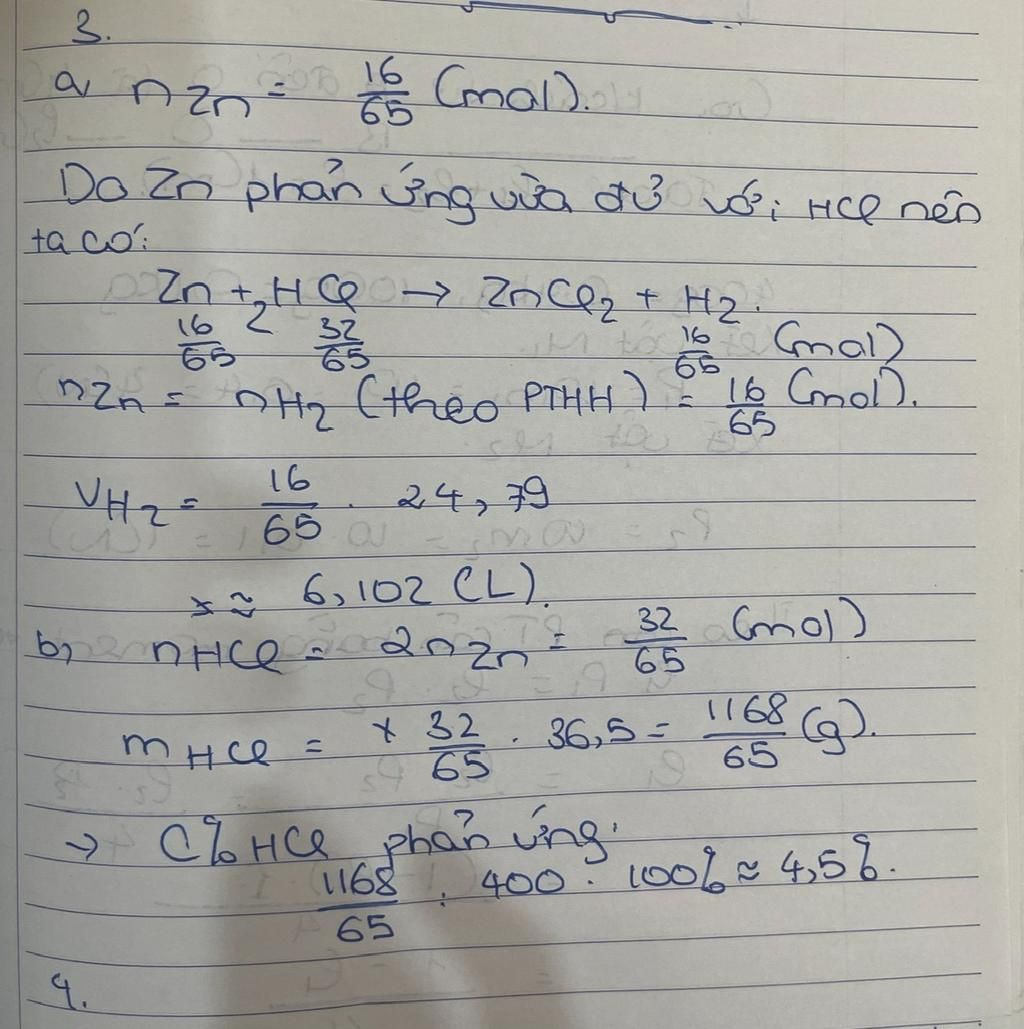 3.
a, nZn = 16/65 (mol).
Do Zn phản ứng vừa đủ với HCl nên
ta có:
Zn + 2HCl → ZnCl₂ + H₂.
16/65 32/65 16/65 (mol)
nZn = nH₂ (theo PTHH) = 16/65 (mol).
VH₂ = 16/65 . 24,79
≈ 6,102 (L).
b, nHCl = 2nZn = 32/65 (mol)
mHCl = 32/65 . 36,5 = 1168/65 (g).
→ C% HCl phản ứng:
1168/65 : 400 . 100% ≈ 4,5%.
4.